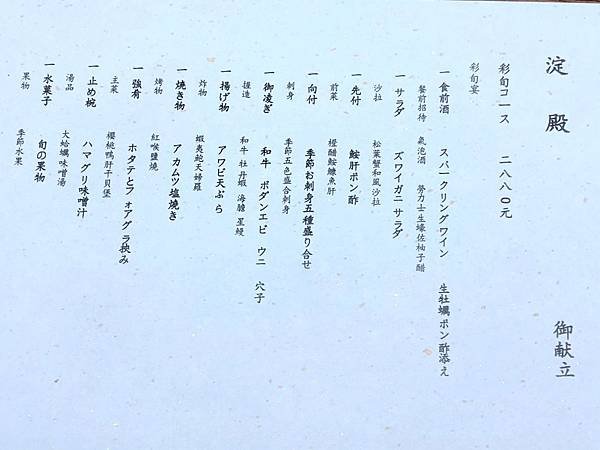 淀殿 御献立
彩旬コース 二八八〇元
彩旬宴
一 食前酒 スパークリングワイン 生牡蠣ポン酢添え
餐前招待 氣泡酒 勞力士生蠔佐柚子醋
一 サラダ ズワイガニサラダ
沙拉 松葉蟹和風沙拉
一 先付 鮟肝ポン酢
前菜 橙醋鮟鱇魚肝
一 向付 季節お刺身五種盛り合せ
刺身 季節五色盛合刺身
一 御凌ぎ 和牛 ボダンエビ ウニ 穴子
握造 和牛 牡丹蝦 海膽 星鰻
一 揚げ物 アワビ天ぷら
炸物 蝦夷鮑天婦羅
一 焼き物 アカムツ塩焼き
烤物 紅喉鹽燒
一 強肴 ホタテとフォアグラ挟み
主菜 櫻桃鴨肝干貝堡
一 止め椀 ハマグリ味噌汁
湯品 大蛤蠣味噌湯
一 水菓子 旬の果物
果物 季節水果